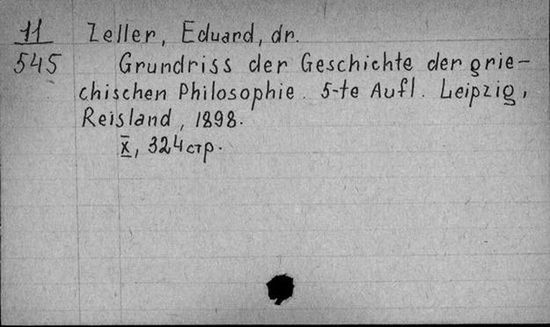 11 Zeller, Eduard, dr.
545 Grundriss der Geschichte der grie-
chischen Philosophie. 5-te Aufl. Leipzig,
Reisland, 1898.
X, 324 стр.